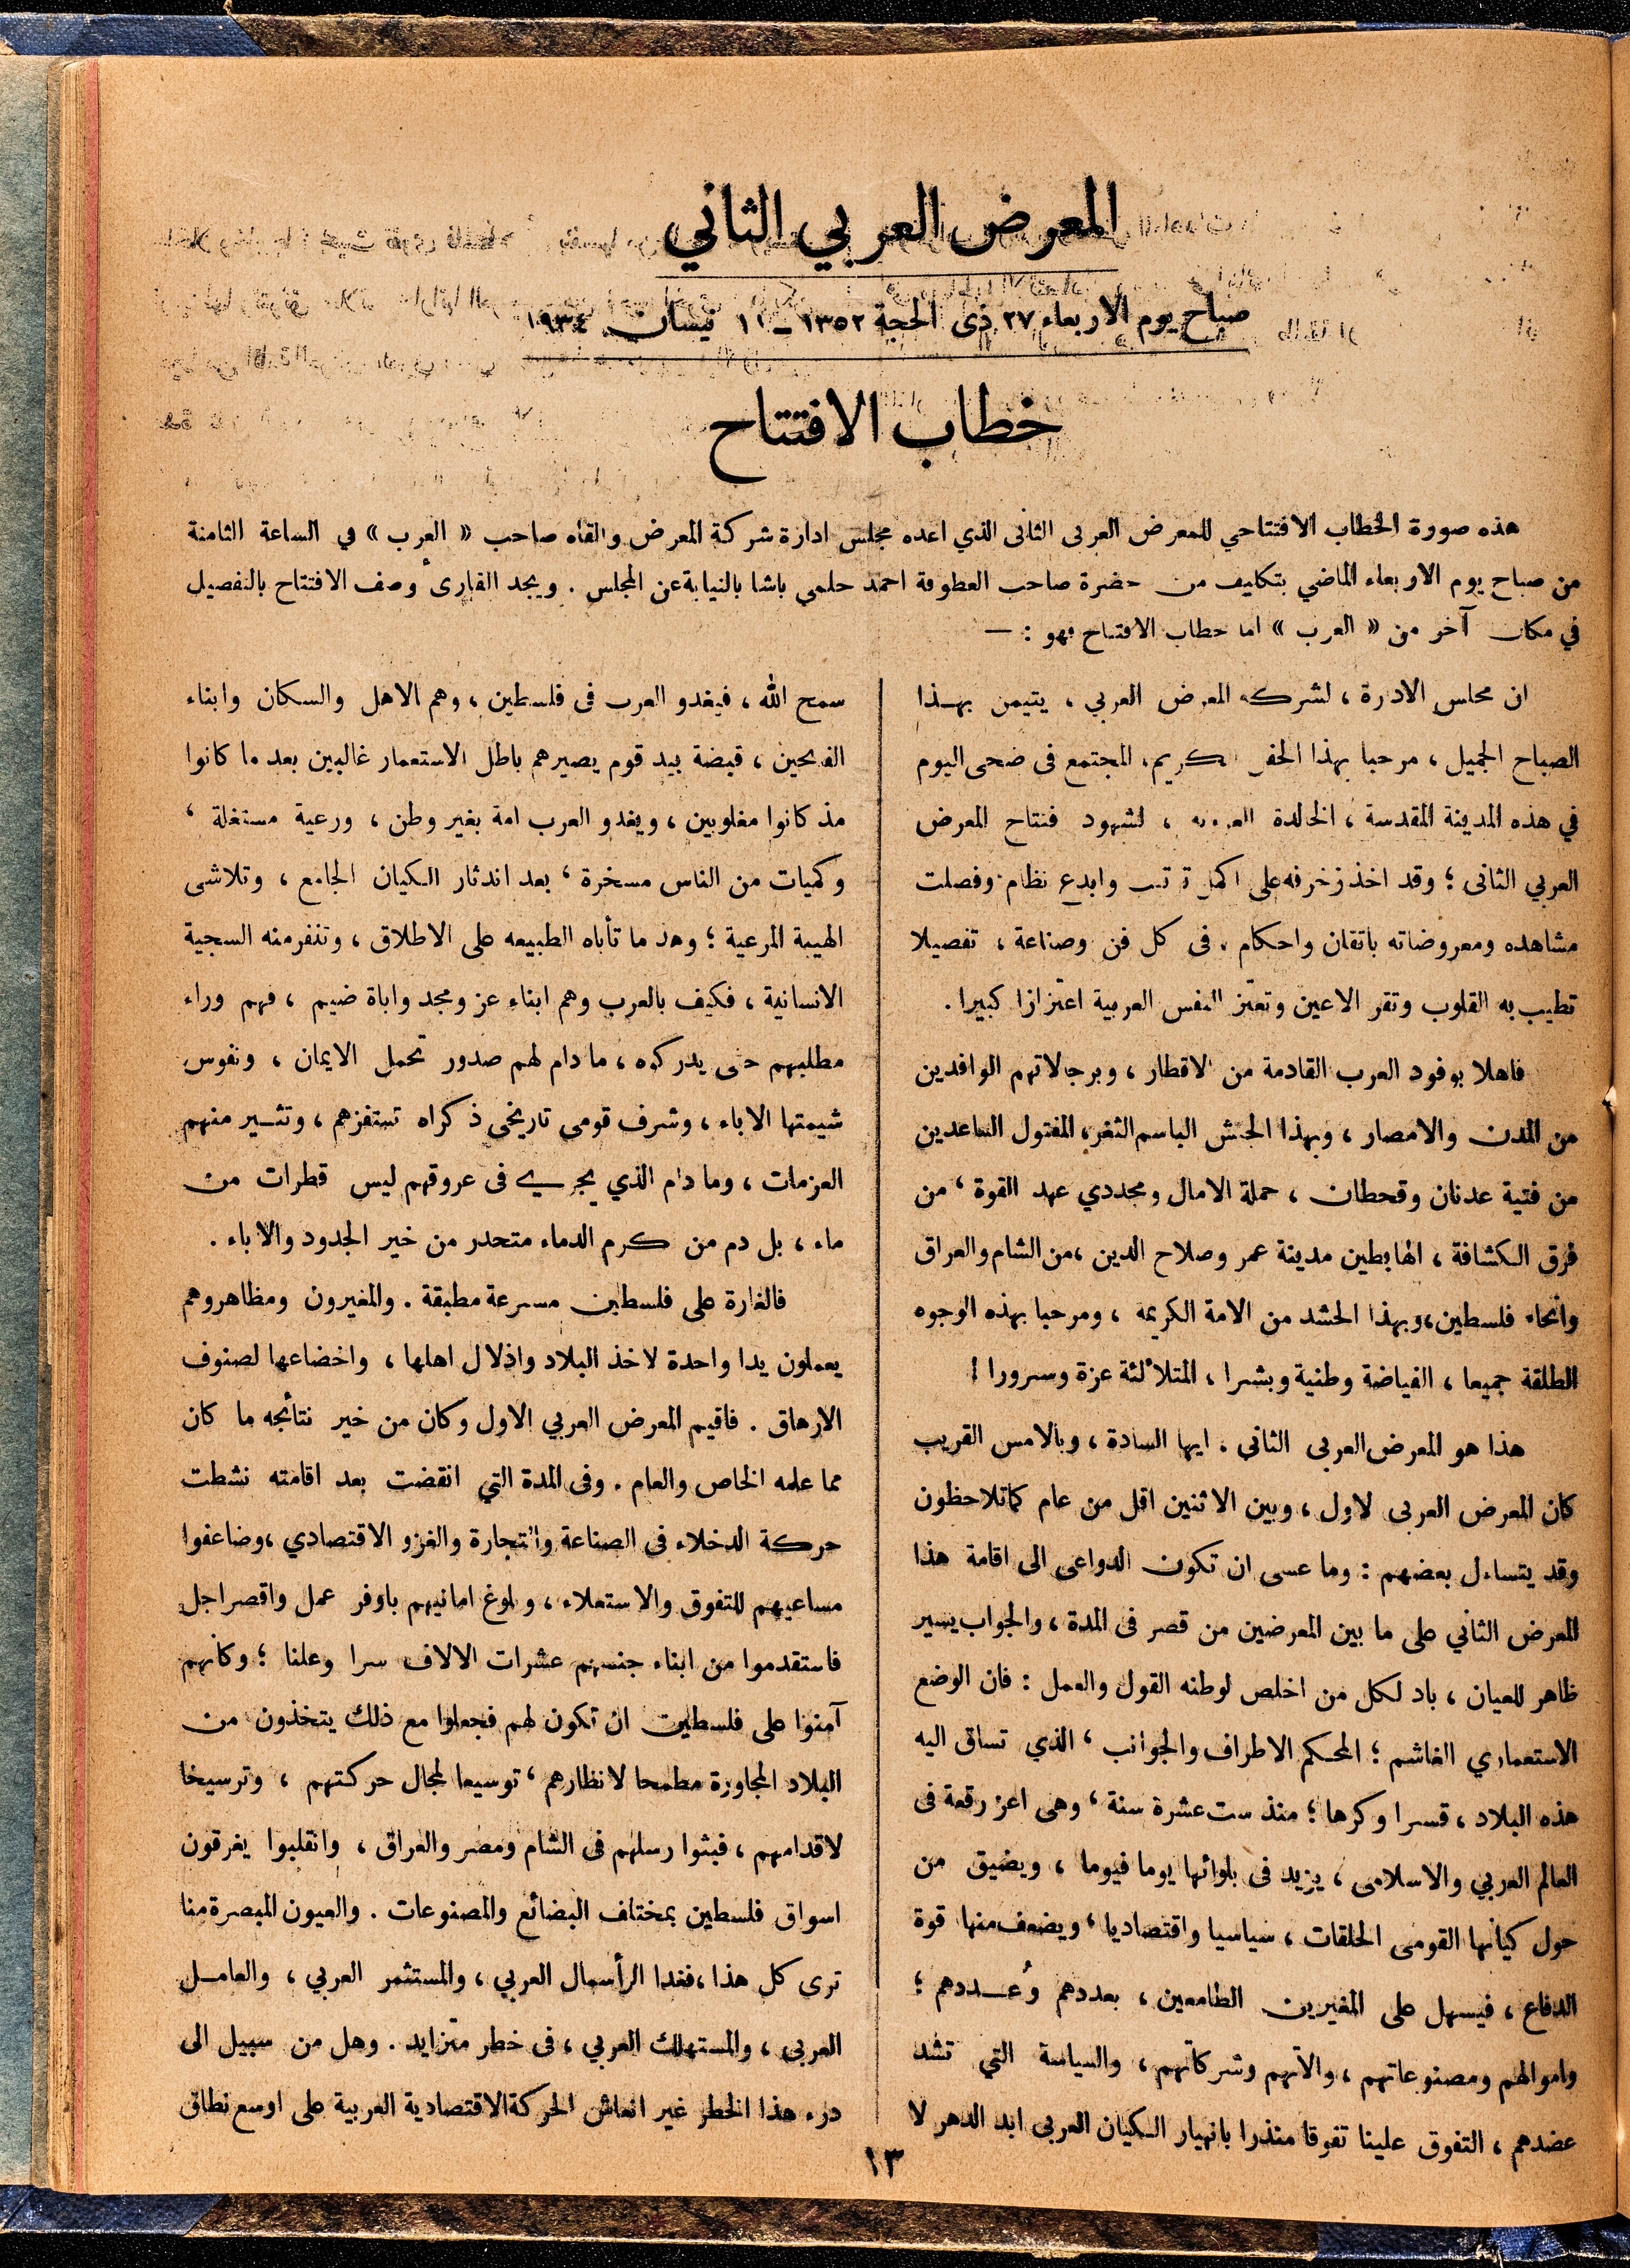 المعرض العربي الثاني
صباح يوم الاربعاء ٢٧ ذى الحجة ١٣٥٢ – ١١ نيسان ١٩٣٤
خطاب الافتتاح
هذه صورة الخطاب الافتتاحي للمعرض العربى الثانى الذي اعده مجلس ادارة شركة المعرض والقاه صاحب « العرب » في الساعة الثامنة
من صباح يوم الاربعاء الماضي بتكليف من حضرة صاحب العطوفة احمد حلمي باشا بالنيابة عن المجلس . ويجد القارىء وصف الافتتاح بالتفصيل
في مكان آخر من « العرب » اما خطاب الافتتاح فهو : —
ان مجلس الادرة ، لشركة المعرض العربي ، يتيمن بهذا
الصباح الجميل ، مرحبا بهذا الحفل الكريم، المجتمع فى ضحى اليوم
في هذه المدينة المقدسة ، الخالدة ، لشهود فتتاح المعرض
العربي الثانى ؛ وقد اخذ زخرفه على اكمل وابدع نظام وفصلت
مشاهده ومعروضاته باتقان واحكام ، فى كل فن وصناعة ، تفصيلا
تطيب به القلوب وتقر الاعين وتعتز النفس العربية اعتزازا كبيرا .
فاهلا بوفود العرب القادمة من الاقطار ، وبرجالاتهم الوافدين
من المدن والامصار ، وبهذا الجيش الباسم الثغر، المفتول الساعدين
من فتية عدنان وقحطان ، حملة الامال ومجددي عهد القوة ، من
فرق الكشافة ، الهابطين مدينة عمر وصلاح الدين ،من الشام والعراق
وانحاء فلسطين،وبهذا الحشد من الامة الكريمة ، ومرحبا بهذه الوجوه
الطلقة جميعا ، الفياضة وطنية وبشرا ، المتلألئة عزة وسرورا !
هذا هو المعرض العربى الثاني ، ايها السادة ، وبالامس القريب
كان المعرض العربى لاول ، وبين الاثنين اقل من عام كما تلاحظون
وقد يتساءل بعضهم : وما عسى ان تكون الدواعى الى اقامة هذا
المعرض الثاني على ما بين المعرضين من قصر فى المدة ، والجواب يسير
ظاهر للعيان ، باد لكل من اخلص لوطنه القول والعمل : فان الوضع
الاستعماري الغاشم ؛ المحكم الاطراف والجوانب ، الذي تساق اليه
هذه البلاد ، قسرا وكرها ؛ منذ ست عشرة سنة ، وهى اعز رقعة فى
العالم العربي والاسلامى ، يزيد فى بلوائها يوما فيوما ، ويضيق من
حول كيانها القومى الحلقات ، سياسيا واقتصاديا ، ويضعف منها قوة
الدفاع ، فيسهل على المغيرين الطامعين ، بعددهم وعُددهم ؛
واموالهم ومصنوعاتهم ، والآتهم وشركاتهم ، والسياسة التي تشد
عضدهم ، التفوق علينا تفوقا منذرا بانهيار الكيان العربى ابد الدهر لا
سمح الله ، فيغدو العرب فى فلسطين ، وهم الاهل والسكان وابناء
الفاتحين ، قبضة بيد قوم يصيرهم باطل الاستعمار غالبين بعد ما كانوا
مذ كانوا مغلوبين ، ويغدو العرب امة بغير وطن ، ورعية مستغلة ،
وكميات من الناس مسخرة ، بعد اندثار الكيان الجامع ، وتلاشى
الهيبة المرعية ؛ وهذ ما تأباه الطبيعه على الاطلاق ، وتنفر منه السجية
الانسانية ، فكيف بالعرب وهم ابناء عز ومجد واباة ضيم ، فهم وراء
مطلبهم حتى يدركوه ، ما دام لهم صدور تحمل الايمان ، ونفوس
شيمتها الاباء ، وشرف قومى تاريخى ذكراه تستفزهم ، وتثير منهم
العزمات ، وما دام الذي يجري فى عروقهم ليس قطرات من
ماء ، بل دم من كرم الدماء متحدر من خير الجدود والاباء .
فالغارة على فلسطين مسرعة مطبقة . والمغيرون ومظاهروهم
يعملون يدا واحدة لاخذ البلاد واذلال اهلها ، واخضاعها لصنوف
الارهاق . فاقيم المعرض العربي الاول وكان من خير نتائجه ما كان
مما علمه الخاص والعام . وفى المدة التي انقضت بعد اقامته نشطت
حركة الدخلاء فى الصناعة والتجارة والغزو الاقتصادي ،وضاعفوا
مساعيهم للتفوق والاستعلاء ، ولوغ امانيهم باوفر عمل واقصر اجل
فاستقدموا من ابناء جنسهم عشرات الالاف سرا وعلنا ؛ وكانهم
آمنوا على فلسطين ان تكون لهم فجعلوا مع ذلك يتخذون من
البلاد المجاورة مطمحا لانظارهم ، توسيعا لمجال حركتهم ، وترسيخا
لاقدامهم ، فبثوا رسلهم فى الشام ومصر والعراق ، وانقلبوا يغرقون
اسواق فلسطين بمختلف البضائع والمصنوعات . والعيون المبصرة منا
ترى كل هذا ،فغدا الرأسمال العربي ، والمستثمر العربي ، والعامل
العربى ، والمستهلك العربي ، فى خطر متزايد . وهل من سبيل الى
درء هذا الخطر غير انعاش الحركة الاقتصادية العربية على اوسع نطاق
١٣